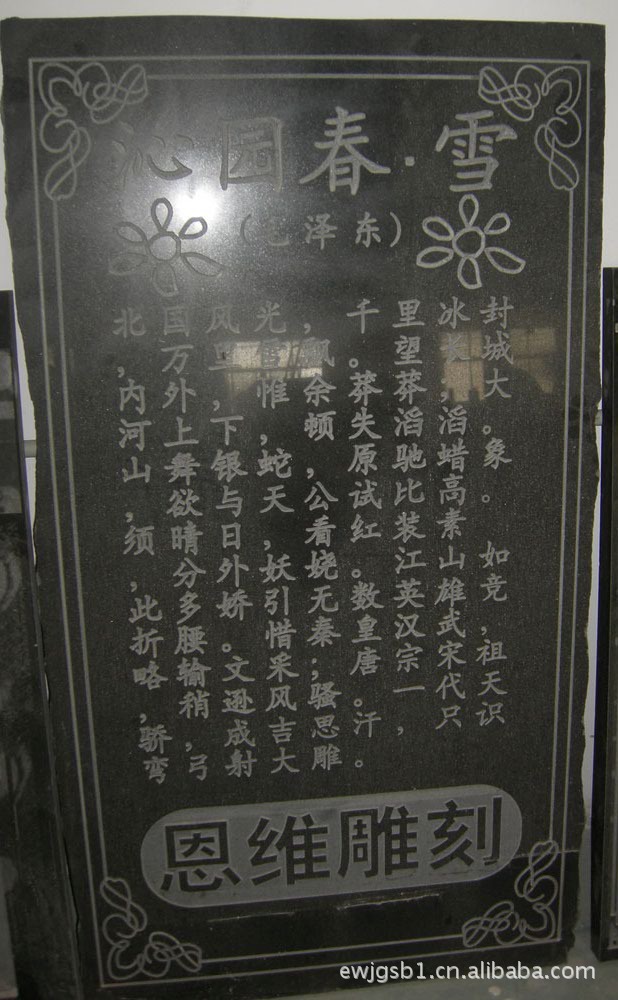 沁园春·雪
(毛泽东)
北国风光,千里冰封
,万里雪飘。望长城
内外,惟余莽莽;大
河上下,顿失滔滔。
山舞银蛇,原驰蜡象
,欲与天公试比高。
须晴日,看红装素
,分外妖娆。江山如
此多娇,引无数英雄竞
折腰。惜秦皇汉武,
略输文采;唐宗宋祖
,稍逊风骚。一代天
骄,成吉思汗,只识
弯弓射大雕。
恩维雕刻
ewjgsb1.cn.alibaba.com